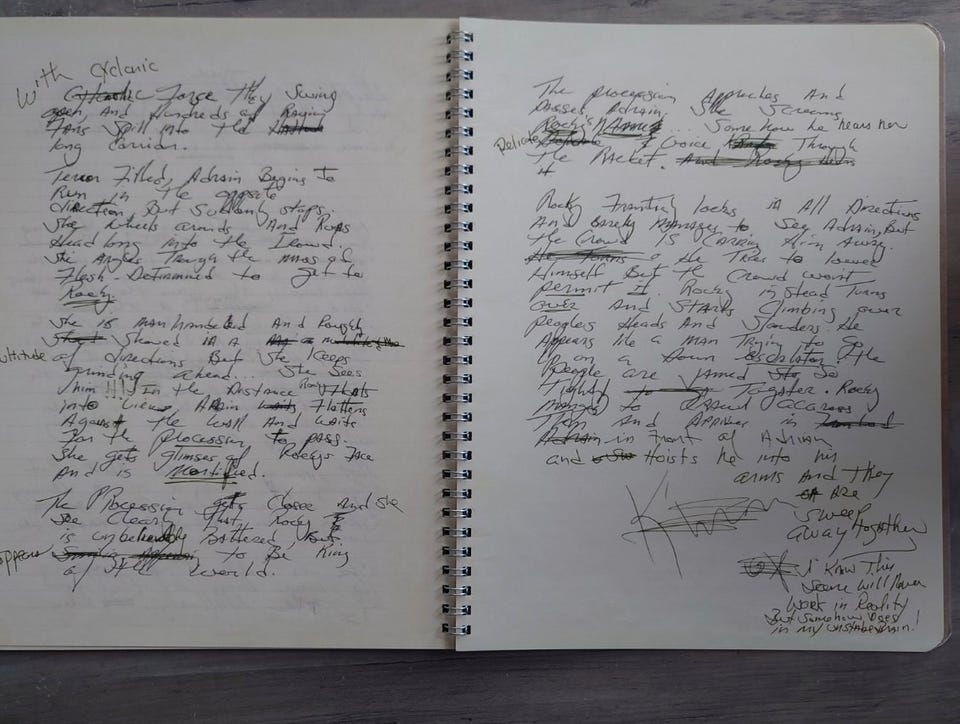 With cyclonic
Force They Swing
open, And Hundreds of Raging
Fans Spill into The
long corridor.
Terror Filled, Adrain Begins To
Run in The opposite
direction But Suddenly stops.
She wheels around And Runs
Headlong into the Crowd.
She Angles Through The mass of
Flesh - Determined to get to
Rocky.
She is Manhandeled And Roughly
Shoved in A
multitude
of directions But She Keeps
grinding ahead... She Sees
him !!!! In the Distance Rocky
into view Adrain Flattens
Against The wall And waits
For the procession To pass.
She gets glimpses of Rockys Face
And is Mortified.
The Procession gets closer And She
See Clearly That Rocky
is unbelievably Battered But
appears to Be King
of The World.
The procession Approches And
Passes Adrain. She Screams
Rocky's Name ... Somehow he hears her
Delicate Voice Through
The Racket.
Rocky Franticly looks in All Directions
And Barely Manages to See Adrain, But
The Crowd is Carrying Him Away.
He Tries to lower
Himself But the Crowd won't
permit It. Rocky instead Turns
over And Starts Climbing over
peoples Heads And Shoulders. He
Appears like a Man Trying to Go
Up on a Down escalator. The
People are Jamed So
Tightly Togeter. Rocky
manages to Crawl Accross
Them And Arrives in
in Front of Adrian
and Hoists he into his
arms And They
Are
Sweep
away together
I Know This
Scene Will Never
Work in Reality
But Somehow Does
in my unstable brain!